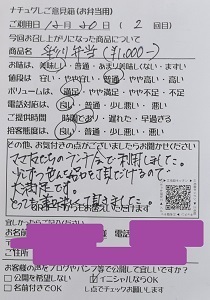 ナチュクしご意見箱(お弁当用)
ご利用日 12月20日 ( 2 回目)
今回お召し上がりになった商品について
商品名 彩り弁当 (¥1,000-)
お味は、美味しい・普通・あまり美味しくない・まずい
値段は 安い・やや安い・普通・やや高い・高い
ボリュームは 満足・やや満足・普通・やや不足・不足
電話対応は 良い・普通・悪い
ご提供時間 であり・遅れた・早過ぎる
接客態度は 良い・普通・悪い
その他、お気付きの点がございましたらお聞かせください
ママ友たちのランチ会で利用しました。
いろんな を頂けるので、
大満足です。
とっても美味しく頂きました。
お名前 電話
ご住所
お客様の声をブログやパンフ等で公開して宜しいですか?
□公開を希望しない ☑イニシャルならOK
□名前付きでOK レ点でチェックお願いします